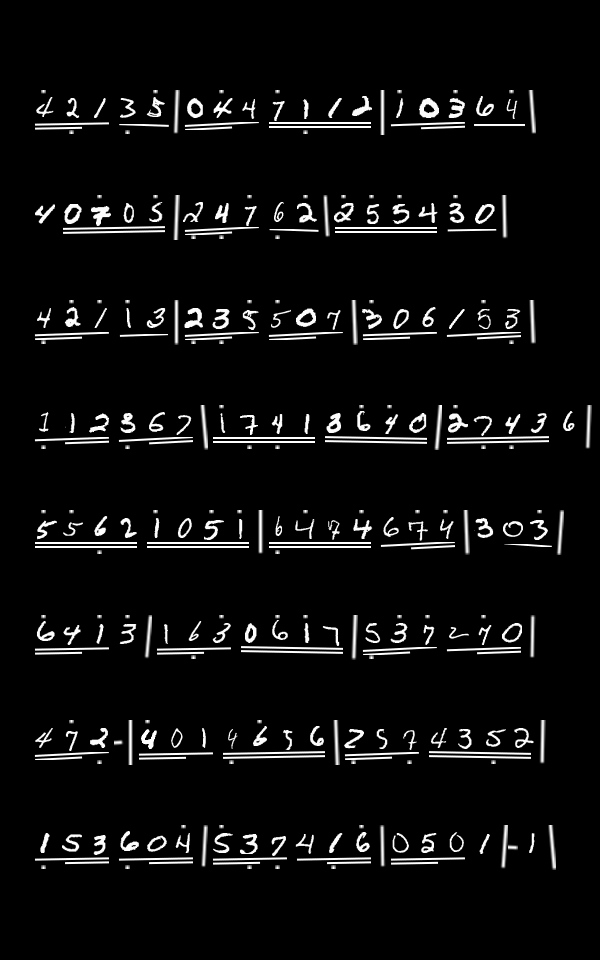 4 2 1 3 5 | 0 4 4 7 1 1 2 | 1 0 3 6 4 |
4 0 7 0 5 | 2 4 7 6 2 | 2 5 5 4 3 0 |
4 2 1 1 3 | 2 3 5 5 0 7 | 3 0 6 1 5 3 |
1 1 2 3 6 7 | 1 7 4 1 3 6 4 0 | 2 7 4 3 6 |
5 5 6 2 1 0 5 1 | 6 4 7 4 6 7 4 | 3 0 3 |
6 4 1 3 | 1 6 3 0 6 1 7 | 5 3 7 2 7 0 |
4 7 2 - | 4 0 1 4 6 5 6 | 2 5 7 4 3 5 2 |
1 5 3 6 0 4 | 5 3 7 4 1 6 | 0 5 0 1 | - 1 |